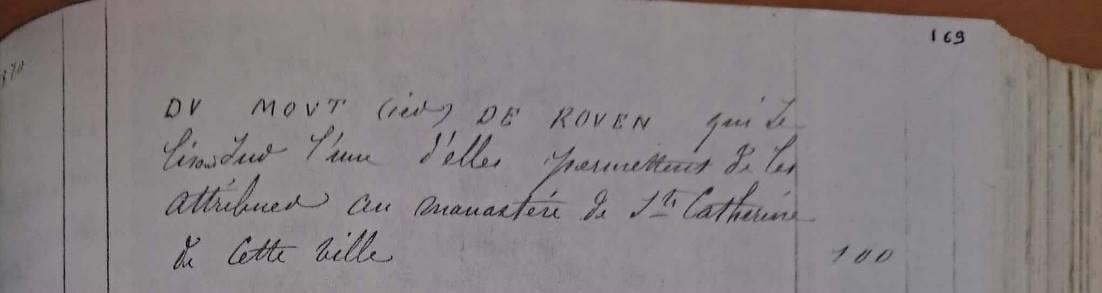 169
370
DV MOVT (sic) DE ROVEN qui se
lisent sur l'une d'elles permettent de les
attribuer au monastère de Ste Catherine
de cette ville
100